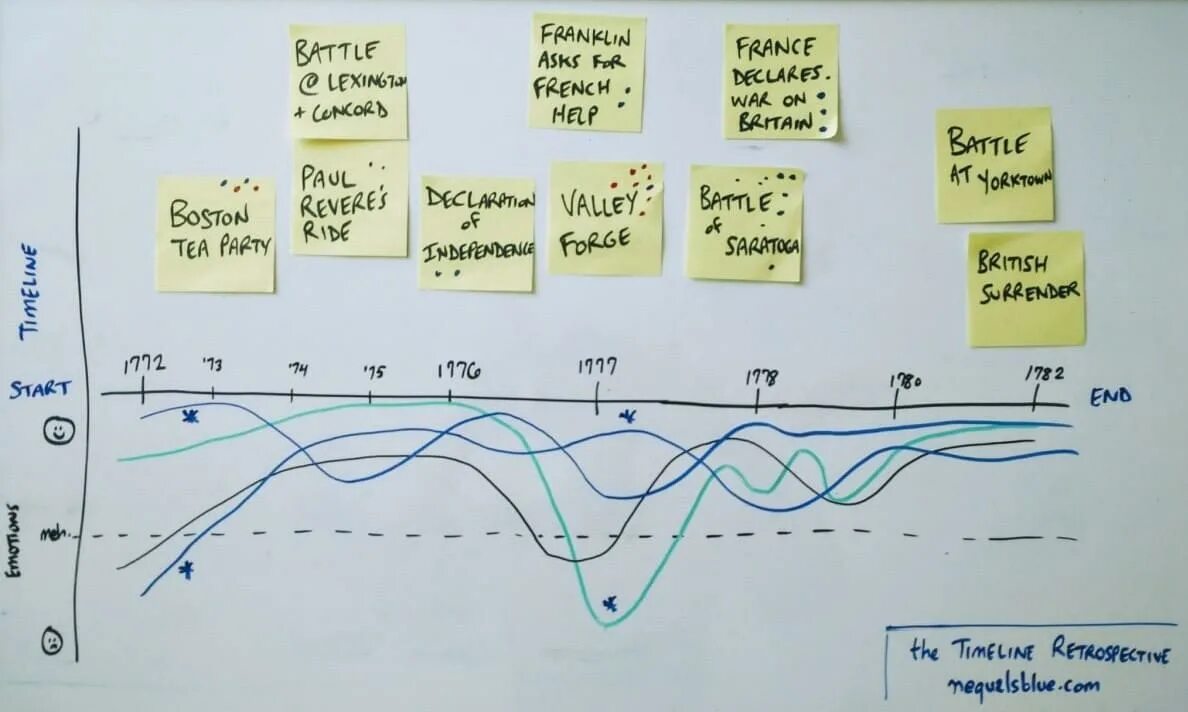 BATTLE
@ LEXINGTON
+ CONCORD
FRANKLIN
ASKS FOR
FRENCH
HELP
FRANCE
DECLARES.
WAR ON
BRITAIN
BATTLE
AT YORKTOWN
BOSTON
TEA PARTY
PAUL
REVERE'S
RIDE
DECLARATION
of
INDEPENDENCE
VALLEY
FORGE
BATTLE
of
SARATOGA
BRITISH
SURRENDER
TIMELINE
1772 '73 '74 '75 1776 1777 1778 1780 1782
START
END
EMOTIONS
meh.
the TIMELINE RETROSPECTIVE
nequalsblue.com